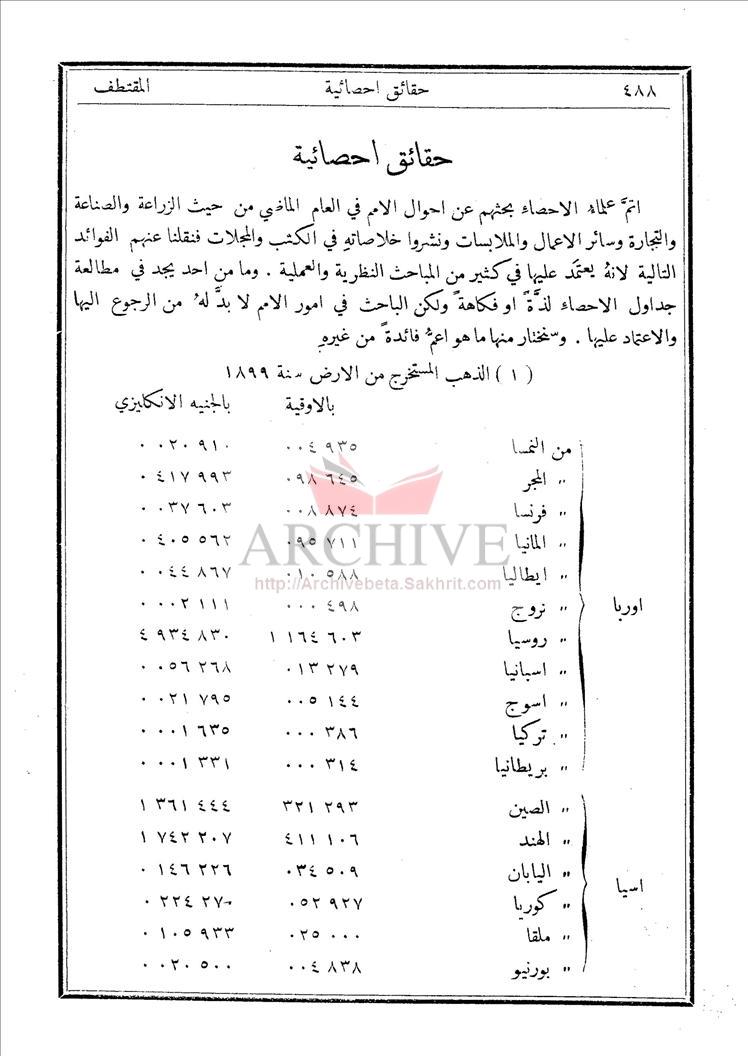 ٤٨٨ حقائق احصائية المقتطف
حقائق احصائية
اتمَّ علماءُ الاحصاء بحثهم عن احوال الامم في العام الماضي من حيث الزراعة والصناعة
والتجارة وسائر الاعمال والملابسات ونشروا خلاصاتهِ في الكتب والمجلات فنقلنا عنهم الفوائد
التالية لانهُ يعتمَد عليها في كثير من المباحث النظرية والعملية . وما من احد يجد في مطالعة
جداول الاحصاء لذَّةً او فكاهةً ولكن الباحث في امور الامم لا بدَّ لهُ من الرجوع اليها
والاعتماد عليها . وسنختار منها ما هو اعمُّ فائدةً من غيرهِ
( ١ ) الذهب المستخرج من الارض سنة ١٨٩٩
بالاوقية بالجنيه الانكليزي
من النمسا ٠٠٤ ٩٣٥ ٠ ٠٢٠ ٩١٠
〃 المجر ٠٩٨ ٦٤٥ ٠ ٤١٧ ٩٩٣
〃 فرنسا ٠٠٨ ٨٧٤ ٠ ٠٣٧ ٦٠٣
〃 المانيا ٠٩٥ ٧١١ ٠ ٤٠٥ ٥٦٢
〃 ايطاليا ٠١٠ ٥٨٨ ٠ ٠٤٤ ٨٦٧
اوربا 〃 نروج ٠٠٠ ٤٩٨ ٠ ٠٠٢ ١١١
〃 روسيا ١ ١٦٤ ٦٠٣ ٤ ٩٣٤ ٨٣٠
〃 اسبانيا ٠١٣ ٢٧٩ ٠ ٠٥٦ ٢٦٨
〃 اسوج ٠٠٥ ١٤٤ ٠ ٠٢١ ٧٩٥
〃 تركيا ٠٠٠ ٣٨٦ ٠ ٠٠١ ٦٣٥
〃 بريطانيا ٠٠٠ ٣١٤ ٠ ٠٠١ ٣٣١
〃 الصين ٣٢١ ٢٩٣ ١ ٣٦١ ٤٤٤
〃 الهند ٤١١ ١٠٦ ١ ٧٤٢ ٢٠٧
〃 اليابان ٠٣٤ ٥٠٩ ٠ ١٤٦ ٢٢٦
اسيا 〃 كوريا ٠٥٢ ٩٢٧ ٠ ٢٢٤ ٢٧٠
〃 ملقا ٠٢٥ ٠٠٠ ٠ ١٠٥ ٩٣٣
〃 بورنيو ٠٠٤ ٨٣٨ ٠ ٠٢٠ ٥٠٠
ARCHIVE
http://Archivebeta.Sakhrit.com